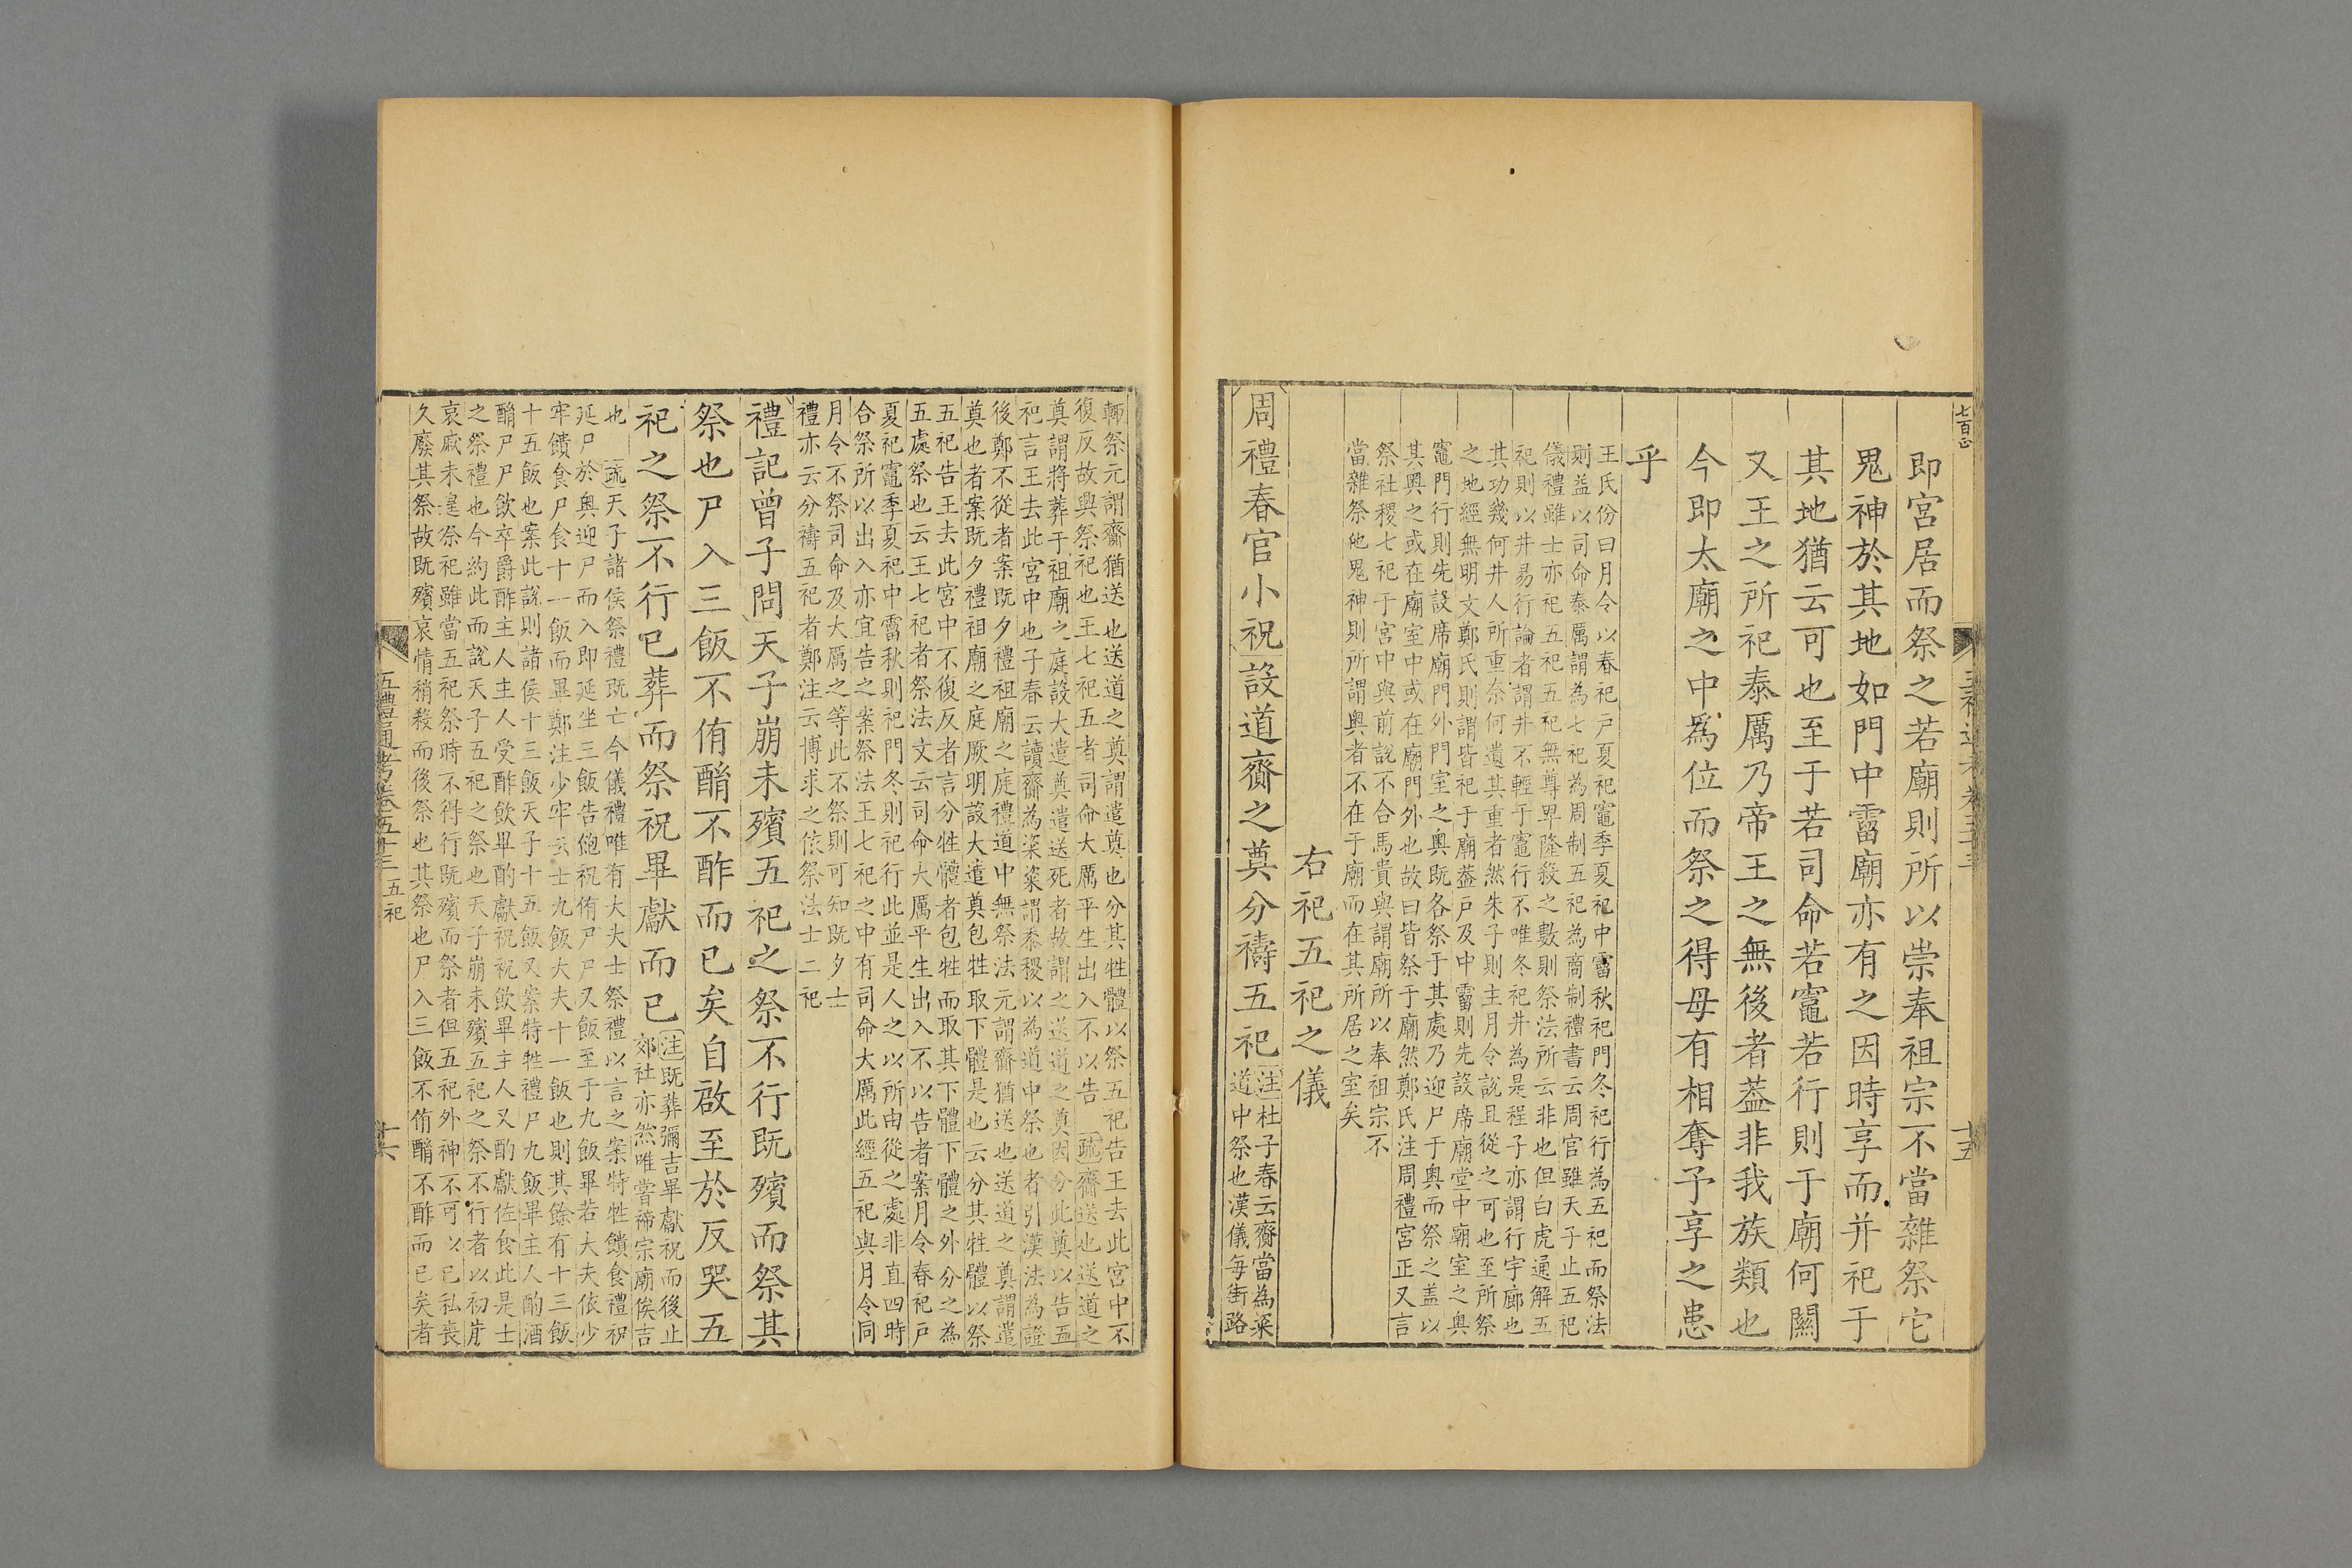 即宮居而祭之若廟則所以崇奉祖宗不當雜祭它
鬼神於其地如門中霤廟亦有之因時享而并祀于
其地猶云可也至于若司命若竈若行則于廟何關
又王之所祀泰厲乃帝王之無後者葢非我族類也
今即太廟之中爲位而祭之得毋有相奪予享之患
乎
王氏份曰月令以春祀戶夏祀竈季夏祀中霤秋祀門冬祀行為五祀而祭法
則益以司命泰厲謂為七祀為周制五祀為商制禮書云周官雖天子止五祀
儀禮雖士亦祀五祀五祀無尊卑隆殺之數則祭法所云非也但白虎通解五
祀則以井易行論者謂井不輕于竈行不唯冬祀井為是程子亦謂行宇廊也
其功幾何井人所重奈何遺其重者然朱子則主月令說且從之可也至所祭
之地經無明文鄭氏則謂皆祀于廟葢戶及中霤則先設席廟堂中廟室之奧
竈門行則先設席廟門外門室之奧既各祭于其處乃迎尸于奧而祭之盖以
其奧之或在廟室中或在廟門外也故曰皆祭于廟然鄭氏注周禮宮正又言
祭社稷七祀于宮中與前說不合馬貴與謂廟所以奉祖宗不
當雜祭他鬼神則所謂奧者不在于廟而在其所居之室矣
右祀五祀之儀
周禮春官小祝設道齎之奠分禱五祀
注杜子春云齎當為粢
道中祭也漢儀每街路
輒祭元謂齎猶送也送道之奠謂遣奠也分其牲體以祭五祀告王去此宮中不
復反故與祭祀也王七祀五者司命大厲平生出入不以告 疏齎送也送道之
奠謂將葬于祖廟之庭設大遣奠遣送死者故謂之送道之奠因分此奠以告五
祀言王去此宮中也子春云讀齎為粢粢謂黍稷以為道中祭也者引漢法為證
後鄭不從者案既夕禮祖廟之庭禮道中無祭法元謂齎猶送也送道之奠謂遣
奠也者案既夕禮祖廟之庭厥明設大遣奠包牲取下體是也云分其牲體以祭
五祀告王去此宮中不復反者言分牲體者包牲而取其下體下體之外分之為
五處祭也云王七祀者祭法文云司命大厲平生出入不以告者案月令春祀戶
夏祀竈季夏祀中霤秋則祀門冬則祀行此並是人之以所由從之處非直四時
合祭所以出入亦宜告之案祭法王七祀之中有司命大厲此經五祀與月令同
月令不祭司命及大厲之等此不祭則可知既夕士
禮亦云分禱五祀者鄭注云博求之依祭法士二祀
禮記曾子問天子崩未殯五祀之祭不行既殯而祭其
祭也尸入三飯不侑酳不酢而已矣自啟至於反哭五
祀之祭不行已葬而祭祝畢獻而已
注既葬彌吉畢獻祝而後止
郊社亦然唯嘗禘宗廟俟吉
也 疏天子諸侯祭禮既亡今儀禮唯有大夫士祭禮以言之案特牲饋食禮祝
延尸於奧迎尸而入即延坐三飯告飽祝侑尸尸又飯至于九飯畢若大夫依少
牢饋食尸食十一飯而畢鄭注少牢云士九飯大夫十一飯也則其餘有十三飯
十五飯也案此說則諸侯十三飯天子十五飯又案特牲禮尸九飯畢主人酌酒
酳尸尸飲卒爵酢主人主人受酢飲畢酌獻祝祝飲畢主人又酌獻佐食此是士
之祭禮也今約此而說天子五祀之祭也天子崩未殯五祀之祭不行者以初崩
哀慼未遑祭祀雖當五祀祭時不得行既殯而祭者但五祀外神不可以已私喪
久廢其祭故既殯哀情稍殺而後祭也其祭也尸入三飯不侑酳不酢而已矣者
五禮通考卷五十三 五祀
十六
七百四
十五